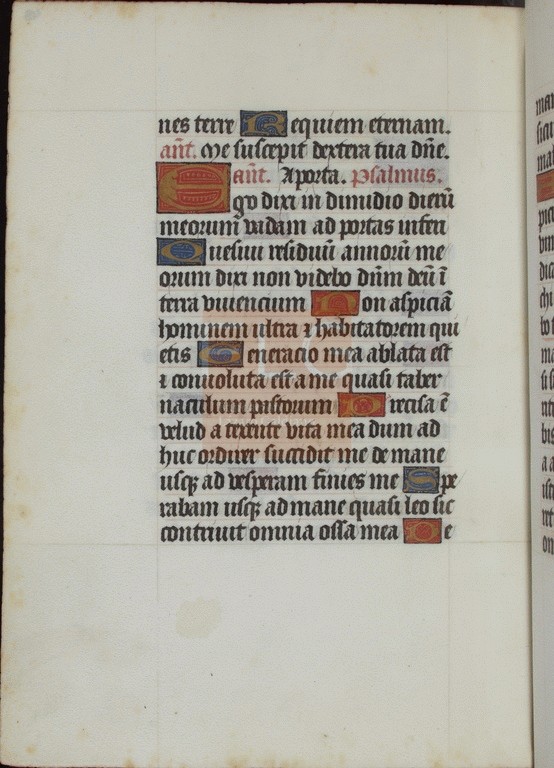 nes terre Requiem eternam.
ant̄. Me suscepit dextera tua dn̄e.
ant̄. A porta. Psalmus.
Ego dixi in dimidio dierū
meorum vadam ad portas inferi
Quesiui residuū annorū me
orum dixi non videbo dūm deū ī
terra viuencium Non aspiciā
hominem ultra ⁊ habitatorem qui
etis Generacio mea ablata est
⁊ conuoluta est a me quasi taber
naculum pastorum Precisa ē
velud a texente vita mea dum ad
huc ordirer succidit me de mane
usqꝫ ad vesperam finies me Spe
rabam usqꝫ ad mane quasi leo sic
contriuit omnia ossa mea De